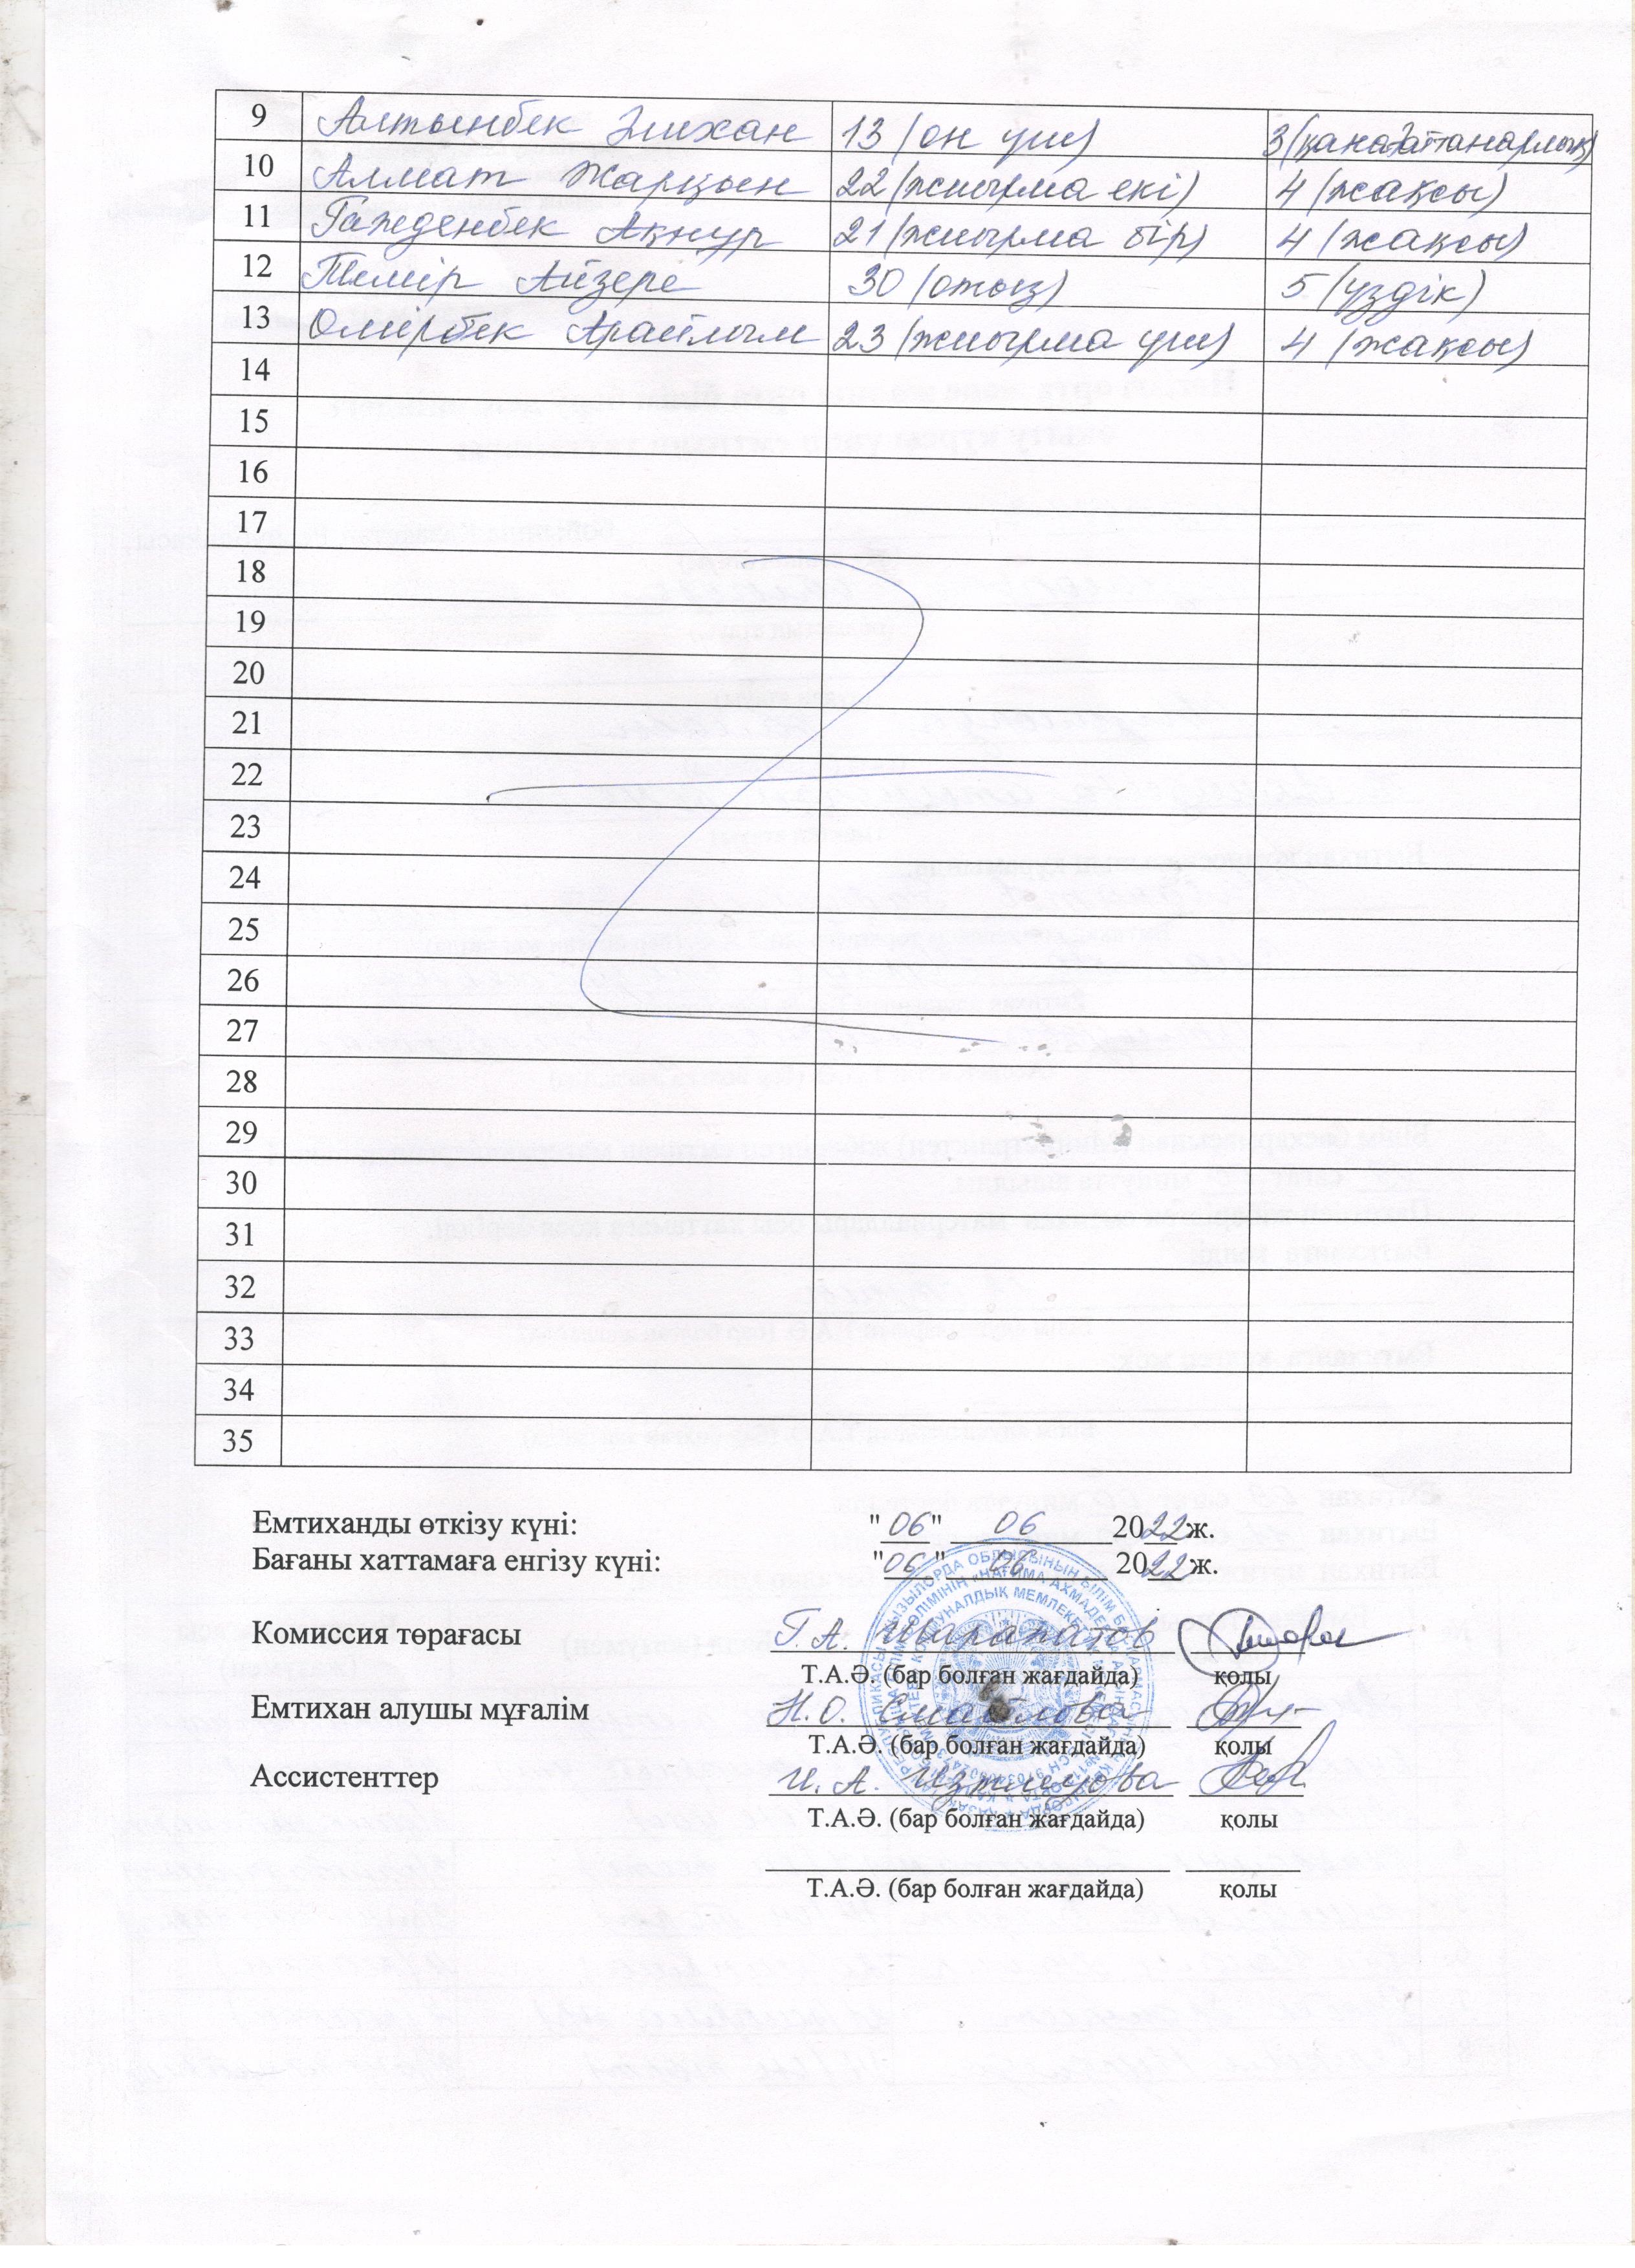 9 Алтынбек Әлихан 13 (он үш) 3 (қанағаттанарлық)
10 Алмат Жарқын 22 (жиырма екі) 4 (жақсы)
11 Гажденбек Ақнұр 21 (жиырма бір) 4 (жақсы)
12 Темір Айзере 30 (отыз) 5 (үздік)
13 Өмірбек Арайлым 23 (жиырма үш) 4 (жақсы)
14
15
16
17
18
19
20
21
22
23
24
25
26
27
28
29
30
31
32
33
34
35
Емтиханды өткізу күні: "06" 06 2022ж.
Бағаны хаттамаға енгізу күні: "06" 06 2022ж.
Комиссия төрағасы Г.А. Шарапатов
Т.А.Ә. (бар болған жағдайда) қолы
Емтихан алушы мұғалім Н.О. Смайлова
Т.А.Ә. (бар болған жағдайда) қолы
Ассистенттер И.А. Изтлеуова
Т.А.Ә. (бар болған жағдайда) қолы
Т.А.Ә. (бар болған жағдайда) қолы